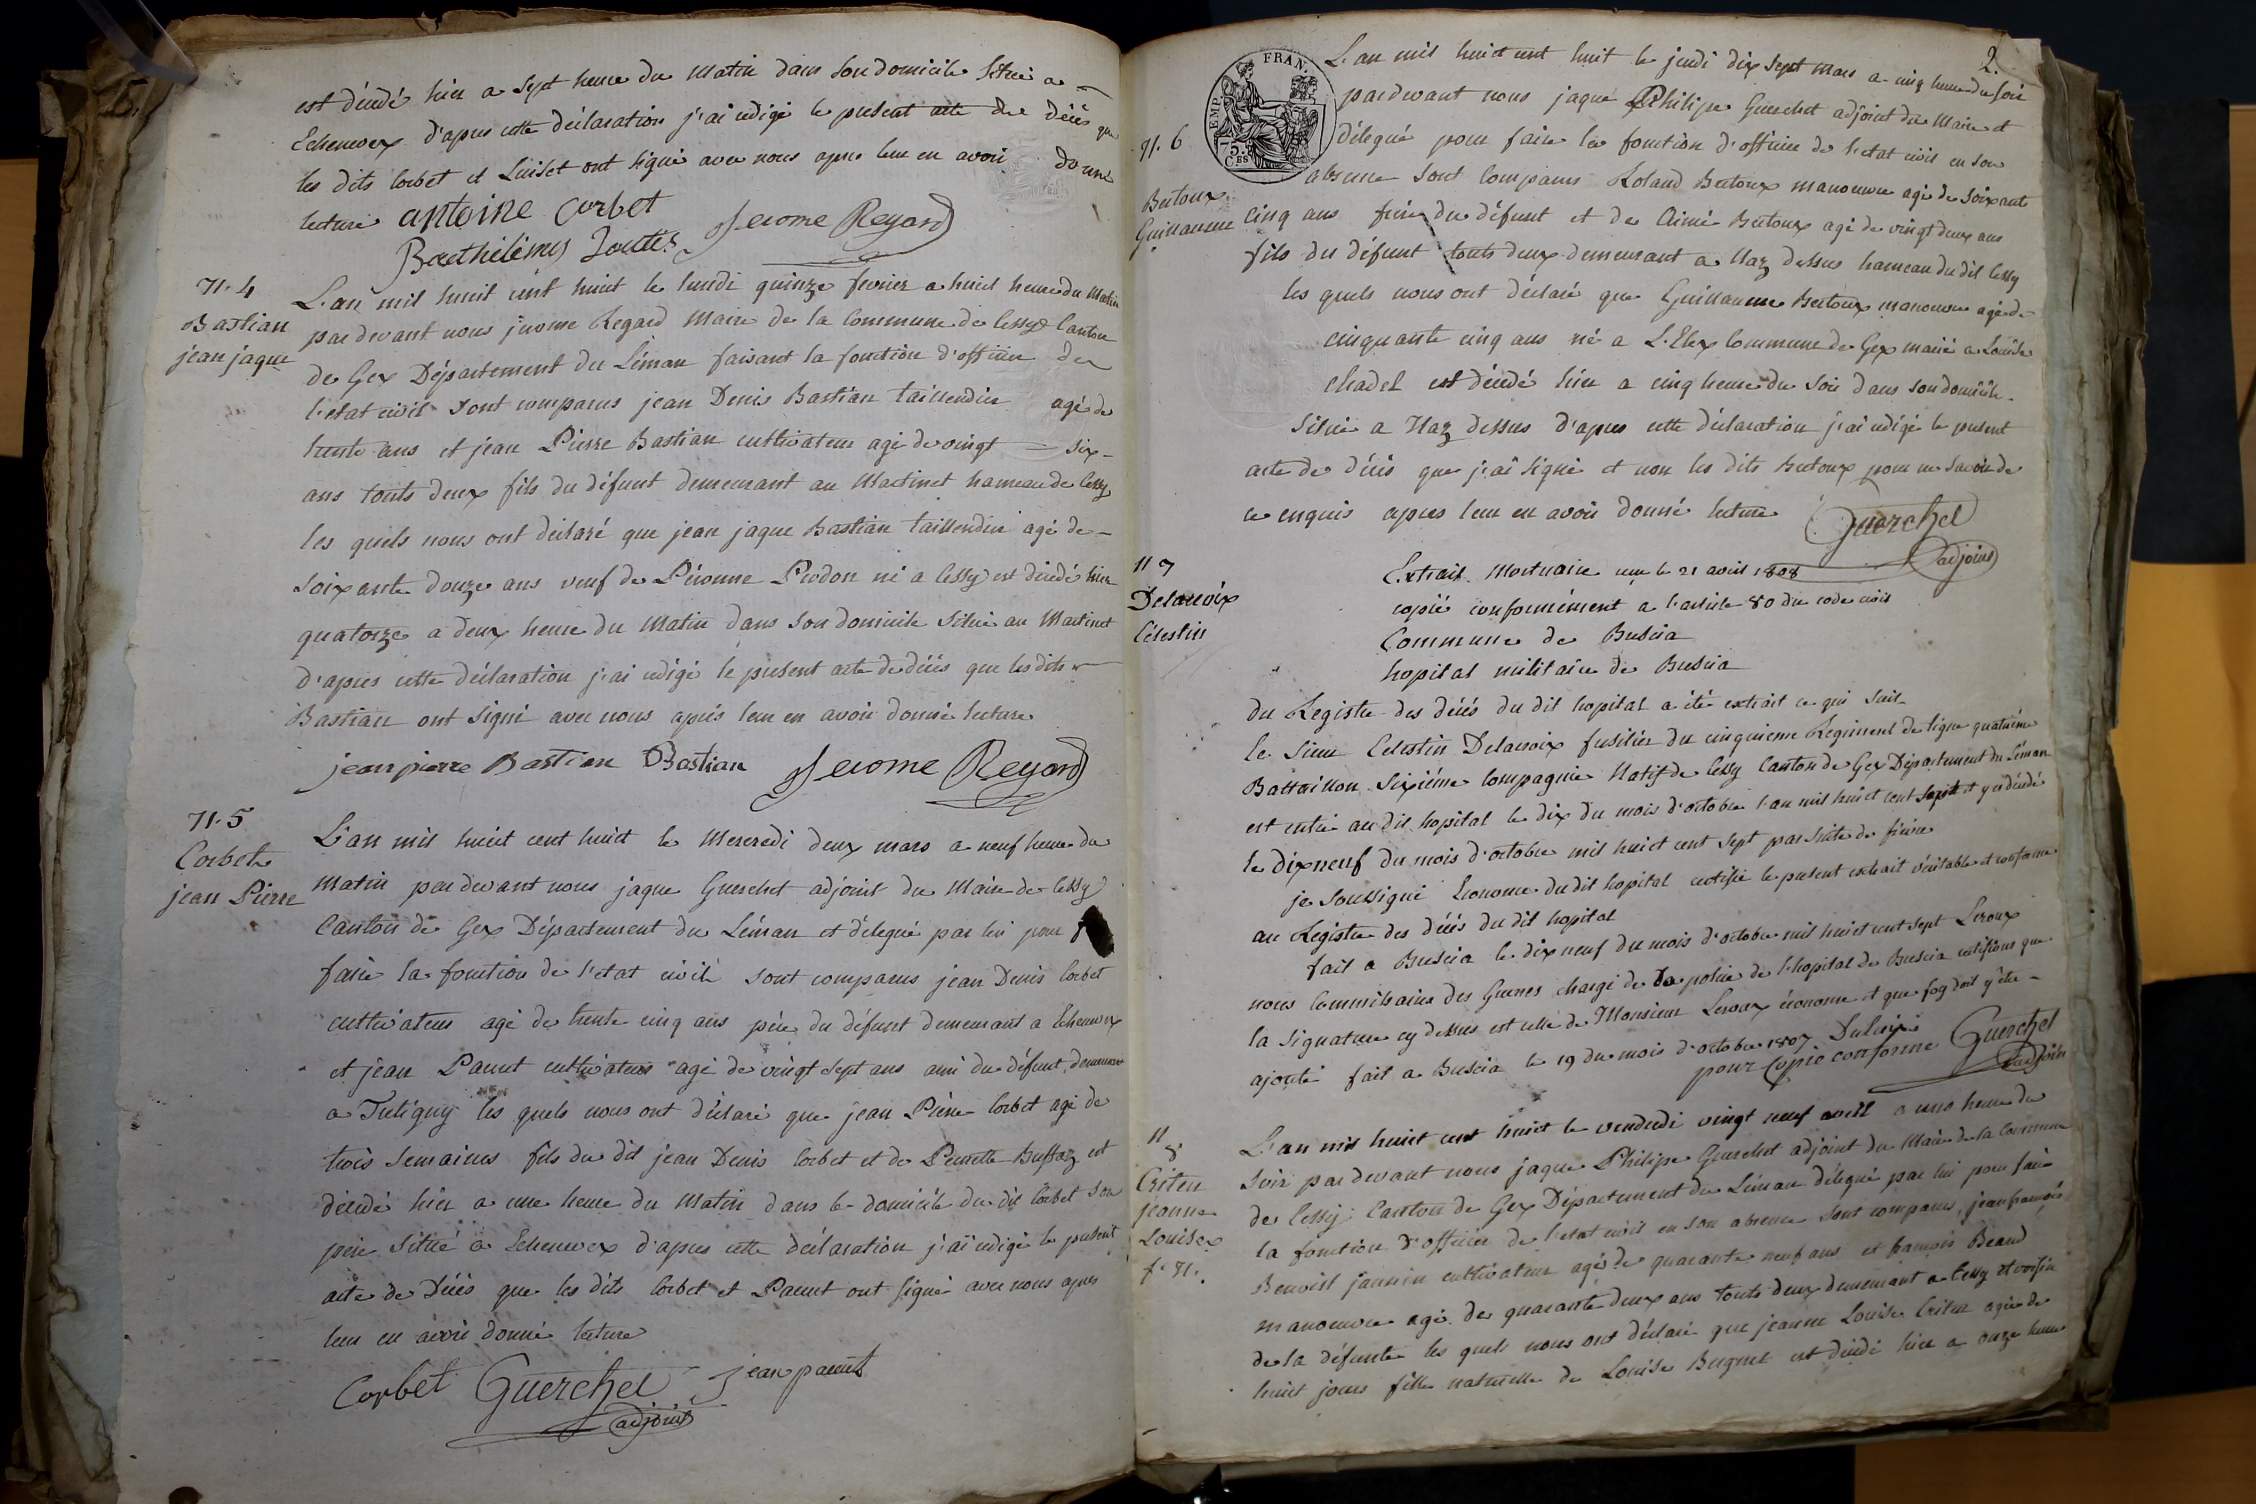 est décédé hier a sept heure du matin dans son domicile situé a
Echenevex d'apres cette déclaration j'ai redigé le present acte de décès que
les dits Corbet et ont signé avec nous apres leur en avoir donné
lecture antoine Corbet
Barthélémy Jerome Regard
N. 4
Bastian
jean jaque
L'an mil huit cent huit le lundi quinze fevrier a huit heure du matin
pardevant nous jerome Regard Maire de la Commune de Cessy Canton
de Gex Département du Léman faisant la fonction d'officier de
l'etat civil sont comparus jean Denis Bastian taillendier agé de
trente ans et jean Pierre Bastian cultivateur agé de vingt six
ans touts deux fils du défunt demeurant au Martinet hameau de Cessy
les quels nous ont déclaré que jean jaque Bastian taillendier agé de
soixante douze ans veuf de Péronne Prodon né a Cessy est décédé hier
quatorze a deux heure du matin dans son domicile situé au Martinet
d'apres cette déclaration j'ai redigé le present acte de décès que les dits
Bastian ont signé avec nous aprés leur en avoir donné lecture
jean pierre Bastian Bastian Jerome Regard
N. 5
Corbet
jean Pierre
L'an mil huit cent huit le Mercredi deux mars a neuf heure du
Matin pardevant nous jaque Guerchet adjoint du Maire de Cessy
Canton de Gex Département du Léman et délegué par lui pour
faire la fonction de l'etat civil sont comparus jean Denis Corbet
cultivateur agé de trente cinq ans pére du défunt demeurant a Echenevex
et jean Panut cultivateur agé de vingt sept ans ami du défunt demeurant
a Tutigny les quels nous ont déclaré que jean Piérre Corbet agé de
trois semaines fils du dit jean Denis Corbet et de Pernette Buffaz est
décédé hier a une heure du matin dans le domicile du dit Corbet son
pére situé a Echenevex d'apres cette declaration j'ai redigé le present
acte de Décès que les dits Corbet et Panut ont signé avec nous apres
leur en avoir donné lecture
Corbet Guerchet jean panut
adjoint
2.
EMP. FRAN.
75. CES
N. 6
Bertoux
Guillaume
L'an mil huit cent huit le jeudi dix sept mars a cinq heure du soir
pardevant nous jaque Philipe Guerchet adjoint du Maire et
délegué pour faire la fonction d'officier de l'etat civil en son
absence sont comparus Roland Bertoux manoeuvre agé de soixante
cinq ans frére du défunt et de Aimé Bertoux agé de vingt deux ans
fils du défunt touts deux demeurant a Naz dessus hameau du dit Cessy
les quels nous ont déclaré que Guillaume Bertoux manoeuvre agé de
cinquante cinq ans né a L'Elex Commune de Gex marié a Louise
chadel est décédé hier a cinq heure du soir dans son domicile
situé a Naz dessus d'apres cette déclaration j'ai redigé le present
acte de décès que j'ai signé et non les dits Bertoux pour ne savoir de
ce enquis apres leur en avoir donné lecture Guerchet
adjoint
N 7
Delacroix
Célestin
Extrait Mortuaire reçu le 21 avril 1808
copié conformément a l'article 80 du code civil
Commune de Brescia
hopital militaire de Brescia
du Registre des décés du dit hopital a été extrait ce qui suit
le sieur Celestin Delacroix fusilier du cinquieme Regiment de ligne quatriéme
Battaillon sixiéme compagnie Natif de Cessy Canton de Gex Département du Léman
est entré au dit hopital le dix du mois d'octobre l'an mil huit cent sept et y est décédé
le dix neuf du mois d'octobre mil huit cent sept par suite de fiévre
je soussigné Econome du dit hopital certifie le present extrait véritable et conforme
au Registre des décés du dit hopital
fait a Brescia le dix neuf du mois d'octobre mil huit cent sept Leroux
nous Commissaire des Guerres chargé de la police de l'hopital de Brescia certifions que
la signature cy dessus est celle de Monsieur Leroux économe et que foy doit y être
ajouté fait a Brescia le 19 du mois d'octobre 1807
pour Copie conforme Guerchet
adjoint
N 8
Criten
jeanne
Louise
f. N.
L'an mil huit cent huit le vendredi vingt neuf avril a une heure du
soir pardevant nous jaque Philipe Guerchet adjoint du Maire de la Commune
de Cessy Canton de Gex Département du Léman délegué par lui pour faire
la fonction d'officier de l'etat civil en son absence sont comparus jean françois
Benoist jannin cultivateur agé de quarante neuf ans et françois Béand
manoeuvre agé de quarante deux ans touts deux demeurant a Cessy et voisin
de la défunte les quels nous ont déclaré que jeanne Louise Criten agée de
huit jours fille naturelle de Louise Bugnet est décédé hier a onze heure